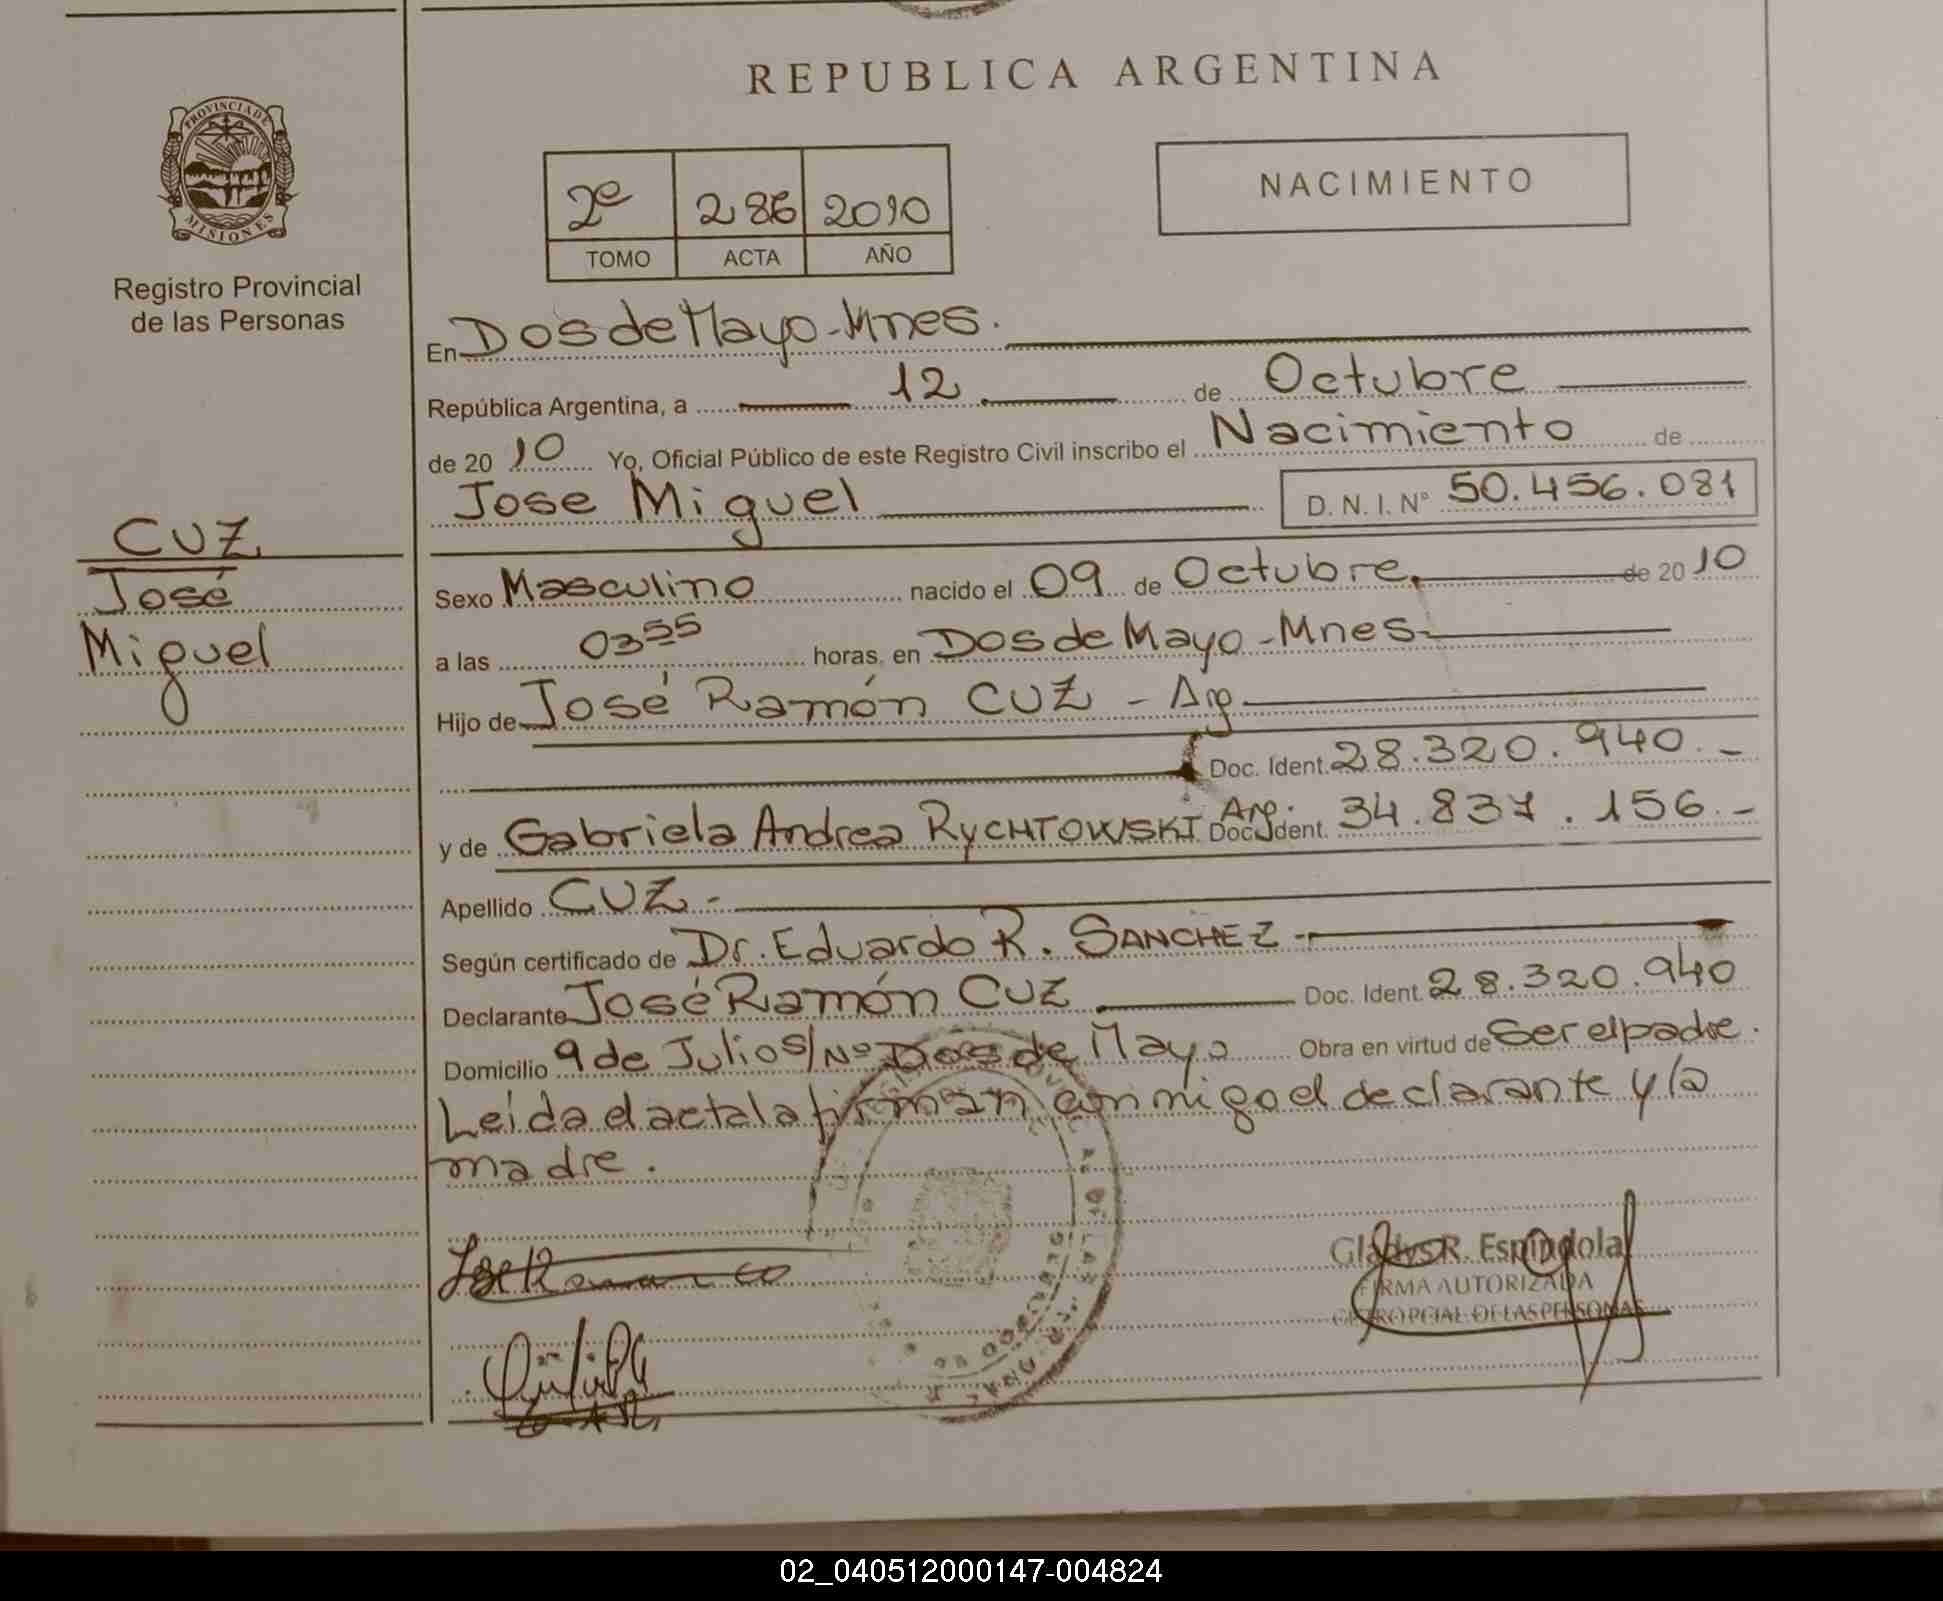 REPUBLICA ARGENTINA
PROVINCIA DE MISIONES
Registro Provincial
de las Personas
2º 286 2010
TOMO ACTA AÑO
NACIMIENTO
En Dos de Mayo - Mnes.
República Argentina, a 12 de Octubre
de 2010 Yo, Oficial Público de este Registro Civil inscribo el Nacimiento de
Jose Miguel D. N. I. Nº 50.456.081
CUZ
José
Miguel
Sexo Masculino nacido el 09 de Octubre de 2010
a las 0355 horas, en Dos de Mayo - Mnes
Hijo de José Ramón CUZ - Arg
Doc. Ident. 28.320.940.-
y de Gabriela Andrea RyCHTOWSKI Arg. Doc. Ident. 34.837.156.-
Apellido CUZ -
Según certificado de Dr. Eduardo R. SANCHEZ -
Declarante José Ramón CUZ Doc. Ident. 28.320.940
Domicilio 9 de Julio s/Nº Dos de Mayo Obra en virtud de Ser el padre.
Leida el acta la firman conmigo el declarante y la
madre.
Gladys R. Espindola
FIRMA AUTORIZADA
DE LAS PERSONAS
02_040512000147-004824